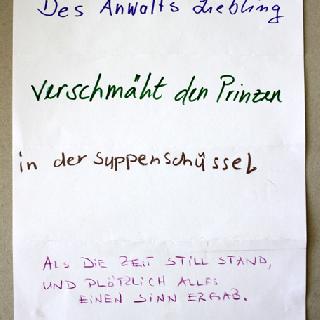 Des Anwalts Liebling
verschmäht den Prinzen
in der Suppenschüssel
ALS DIE ZEIT STILL STAND,
UND PLÖTZLICH ALLES
EINEN SINN ERGAB.